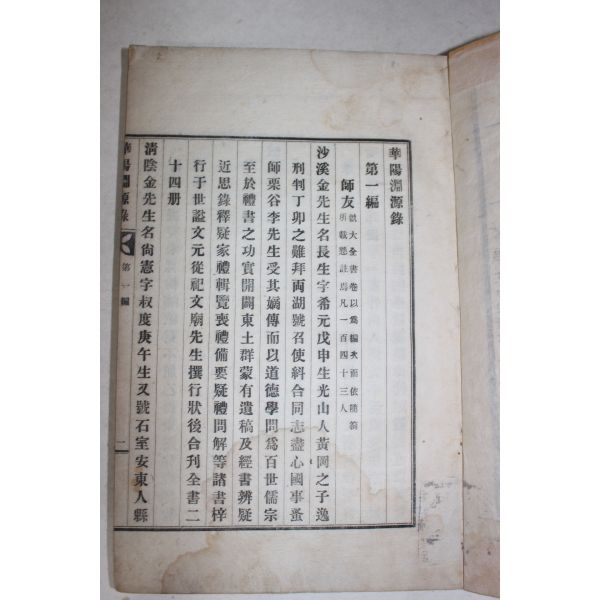 華陽淵源錄
第一編
師友 就大全書卷以爲編次而依隨箚
所載懸註焉凡一百四十三人
沙溪金先生名長生字希元戊申生光山人黃岡之子逸
刑判丁卯之難拜両湖號召使糾合同志盡心國事蚤
師栗谷李先生受其嫡傳而以道德學問爲百世儒宗
至於禮書之功實開闢東土群蒙有遺稿及經書辨疑
近思錄釋疑家禮輯覽喪禮備要疑禮問解等諸書梓
行于世諡文元從祀文廟先生撰行狀後合刊全書二
十四册
淸陰金先生名尙憲字叔度庚午生又號石室安東人縣
華陽淵源錄
第一編
二